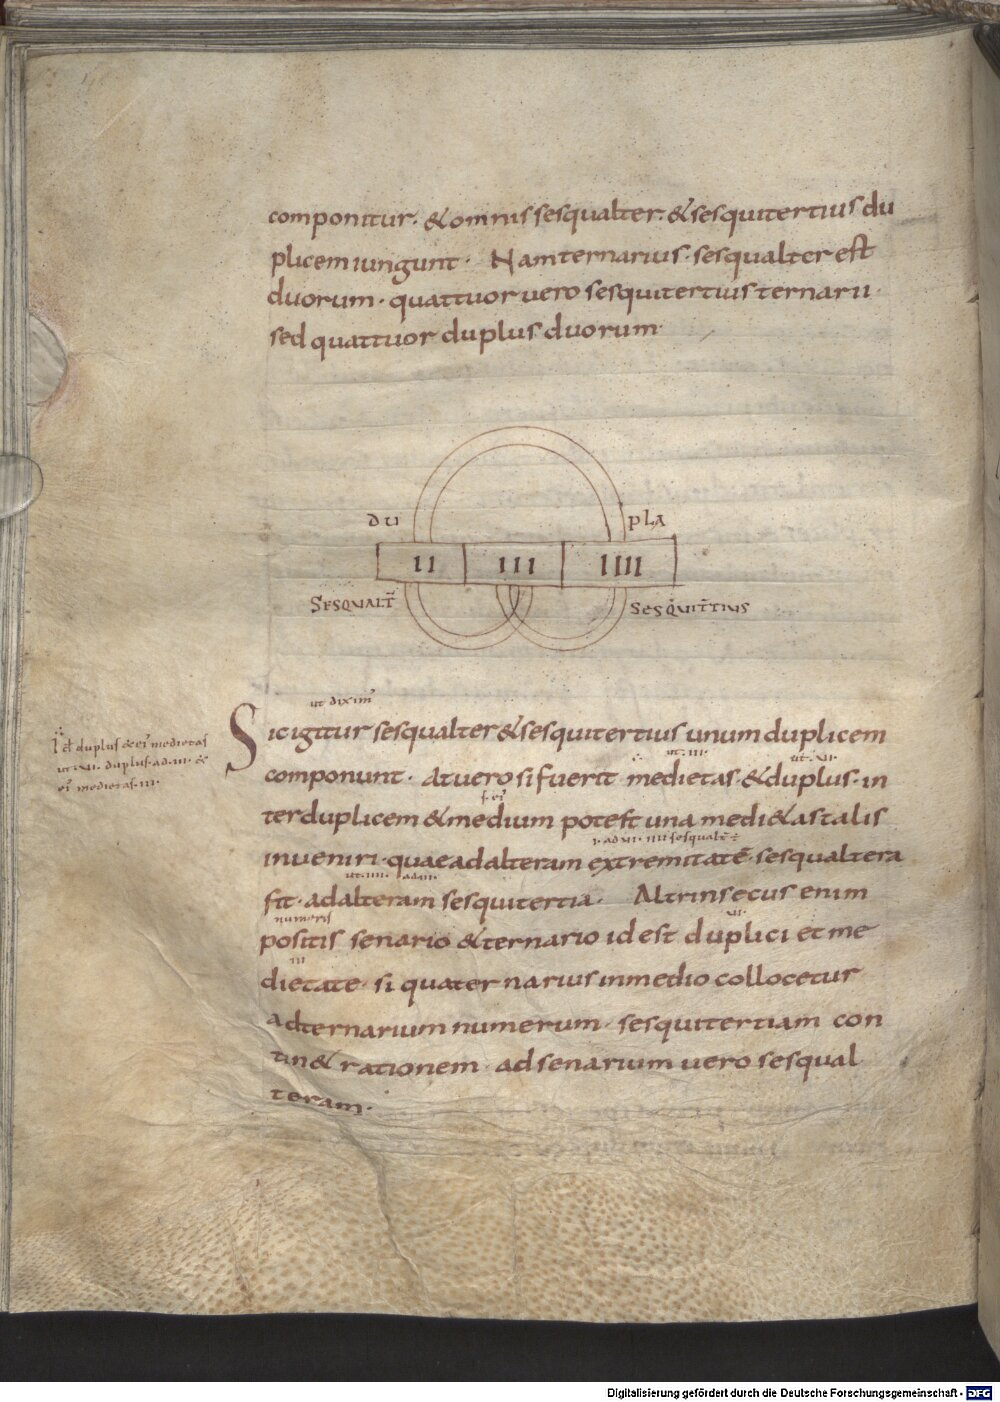 componitur. & omnis sesqualter. & sesquitertius du
plicem iungunt. Nam ternarius. sesqualter est
duorum. quattuor vero sesquitertius ternarii.
sed quattuor duplus duorum.
DU PLA
II III IIII
SESQUALT̄ SESQUIT̄TIUS
ut diximꝰ
Sic igitur sesqualter & sesquitertius unum duplicem
ut. III. ut. VI.
componunt. At vero si fuerit medietas. & duplus. in
ter duplicem & medium potest una medi&as talis
inveniri. quae ad alteram extremitatē. sesqualtera
ut. IIII. ad III.
sit. ad alteram sesquitertia. Altrinsecus enim
numeris VI.
positis senario & ternario id est duplici et me
III
dietate. si quaternarius in medio collocetur
ad ternarium numerum. sesquitertiam con
tin& rationem. ad senarium vero sesqual
teram.
duplus & eiꝰ medietas
ut. VI. duplus. ad. III. &
eiꝰ medietas. III.
Digitalisierung gefördert durch die Deutsche Forschungsgemeinschaft - DFG